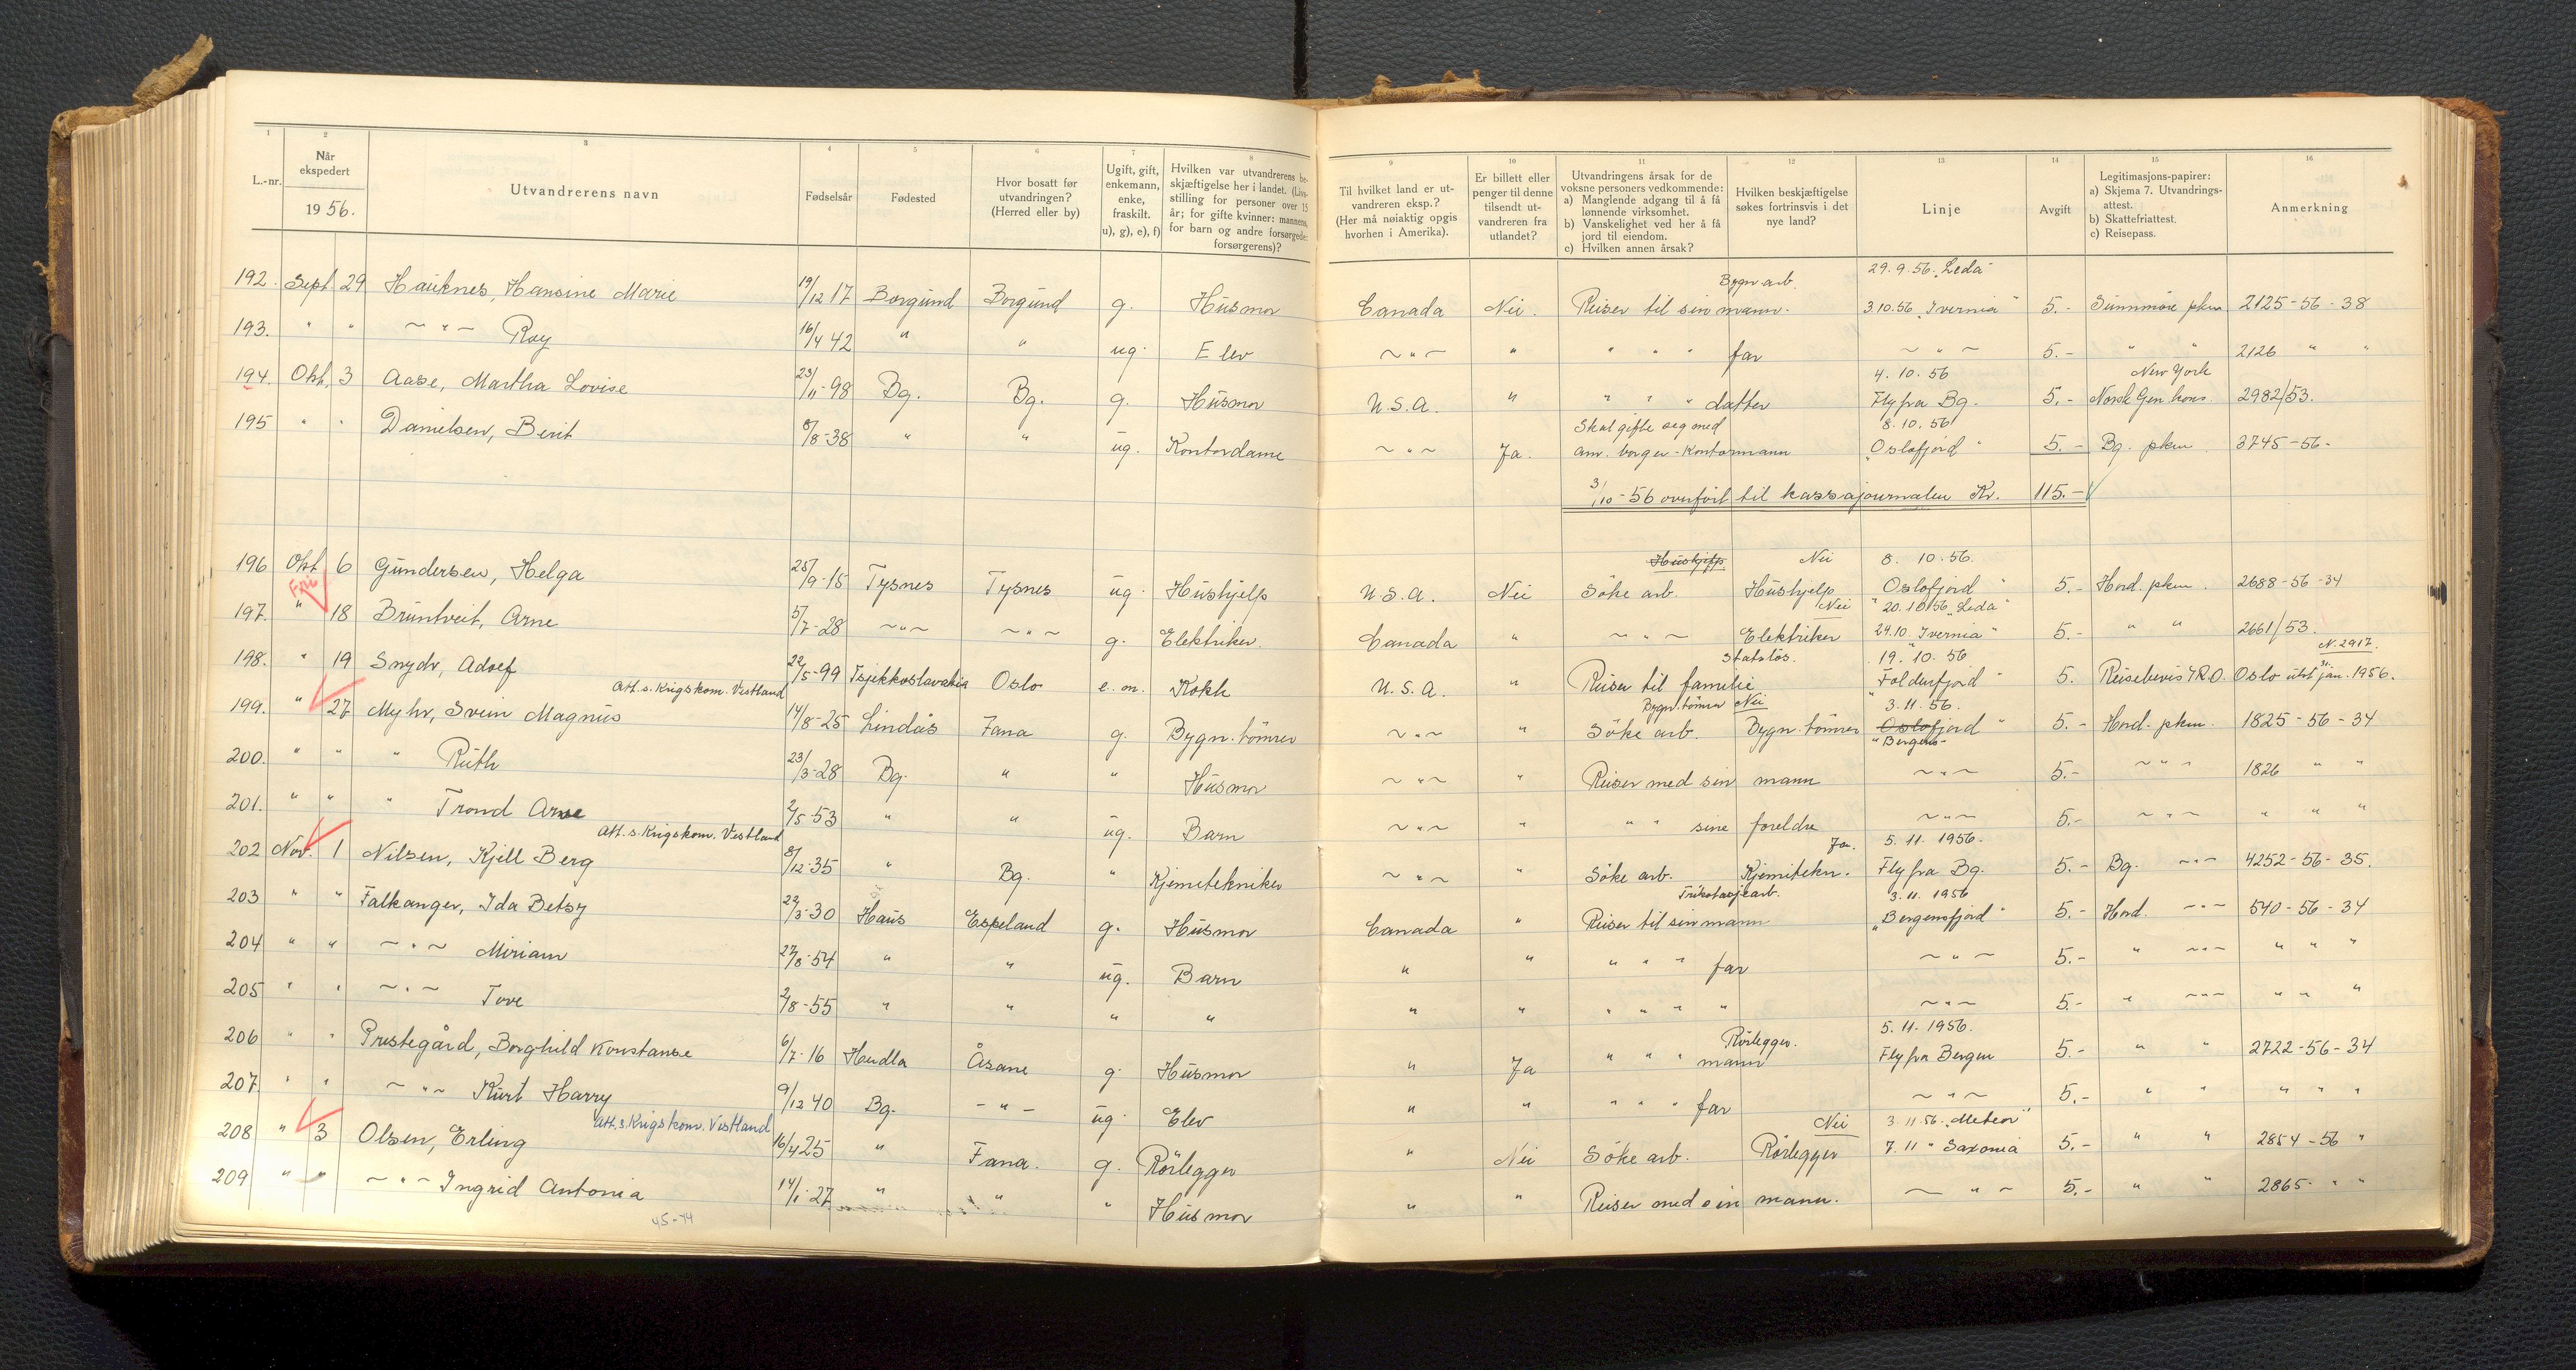 1 2 3 4 5 6 7 8 9 10 11 12 13 14 15 16
L.-nr. | Når ekspedert 1956. | Utvandrerens navn | Fødselsår | Fødested | Hvor bosatt før utvandringen? (Herred eller by) | Ugift, gift, enkemann, enke, fraskilt. u), g), e), f) | Hvilken var utvandrerens beskjæftigelse her i landet. (Livsstilling for personer over 15 år; for gifte kvinner: mannens, for barn og andre forsørgede: forsørgerens)? | Til hvilket land er utvandreren eksp.? (Her må nøiaktig opgis hvorhen i Amerika). | Er billett eller penger til denne tilsendt utvandreren fra utlandet? | Utvandringens årsak for de voksne personers vedkommende: a) Manglende adgang til å få lønnende virksomhet. b) Vanskelighet ved her å få jord til eiendom. c) Hvilken annen årsak? | Hvilken beskjæftigelse søkes fortrinsvis i det nye land? | Linje | Avgift | Legitimasjons-papirer: a) Skjema 7. Utvandringsattest. b) Skattefriattest. c) Reisepass. | Anmerkning
Bygn arb. 29.9.56. „Leda"
192. Sept 29 Hauknes, Hansine Marie 19/12 17 Borgund Borgund g. Husmor Canada Nei. Reiser til sin mann. 3.10.56 „Ivernia" 5.- Sunnmøre pkm 2125-56-38
193. " " ~"~ Roy 16/4 42 " " ug. Elev ~"~ " " " " far ~"~ 5.- " " 2126 " "
4.10.56 New York
194. Okt. 3 Aase, Martha Lovise 23/11-98 Bg. Bg. g. Husmor U.S.A. " " " " datter Fly fra Bg. 5.- Norsk Gen. kons. 2982/53.
Skal gifte seg med 8.10.56
195 " " Danielsen, Berit 8/8-38 " " ug. Kontordame ~"~ Ja. am. borger - Kontormann „Oslofjord" 5.- Bg. pkm. 3745-56-
3/10-56 overført til kassajournalen Kr. 115.-
Hushjelp Nei 8.10.56.
196 Okt 6 Gundersen, Helga 25/9-15 Tysnes Tysnes ug. Hushjelp U.S.A. Nei Söke arb. Hushjelp „Oslofjord" 5.- Hord. pkm. 2688-56-34
Fri Nei 20.10.56 „Leda"
197. " 18 Bruntveit, Arne 5/7-28 ~"~ ~"~ g. Elektriker Canada " ~"~ Elektriker 24.10. „Ivernia" 5.- " " 2661/53.
Statslös. 19.10.56 N. 2917.
198. " 19 Snydr, Adolf 22/5-99 Tsjekkoslavakia Oslo e.m. Kokk U.S.A. " Reiser til familie „Foldenfjord" 5. Reisebevis IRO. Oslo utst 31. jan. 1956.
Att. s. Krigskom. Vestland Bygn. tömrer Nei 3.11.56.
199. " 27 Myhr, Svein Magnus 14/8-25 Lindås Fana g. Bygn. tömrer ~"~ " Söke arb. Bygn. tömrer Oslofjord" 5.- Hord. pkm. 1825-56-34
„Bergens-
200. " " " Ruth 23/3-28 Bg. " " Husmor ~"~ " Reiser med sin mann ~"~ 5.- ~"~ 1826 " "
201. " " " Trond Arne 2/5-53 " " ug. Barn ~"~ " " " sine foreldre ~"~ 5.- ~"~ " " "
Att. s. Krigskom. Vestland Ja. 5.11.1956.
202 Nov. 1 Nilsen, Kjell Berg 8/12-35 " Bg. " Kjemitekniker ~"~ " Söke arb. Kjemitekn. Fly fra Bg. 5.- Bg. ~"~ 4252-56-35.
Trikotasjearb. 3.11.1956
203 " " Falkanger, Ida Betsy 22/3-30 Haus Espeland g. Husmor Canada " Reiser til sin mann „Bergensfjord" 5.- Hord. ~"~ 540-56-34
204 " " ~"~ Miriam 27/8-54 " " ug. Barn " " " " " far ~"~ 5.- " ~"~ " " "
205 " " ~"~ Tove 2/8-55 " " " " " " " " " " ~"~ 5.- " ~"~ " " "
Rörlegger. 5.11.1956.
206 " " Prestegård, Borghild Konstanse 6/7-16 Herdla Åsane g. Husmor " Ja " " " mann Fly fra Bergen 5.- " " 2722-56-34
207. " " ~"~ Kurt Harry 9/12 40 Bg. -"- ug. Elev " " " " " far ~"~ 5.- " " " " "
Att. s. Krigskom. Vestland Nei 3.11.56. „Meteor"
208 " 3 Olsen, Erling 16/4 25 " Fana. g. Rörlegger " Nei Söke arb. Rörlegger 7.11 " Saxonia 5.- " " 2854-56 "
209 " " ~"~ Ingrid Antonia 14/1-27 " " " Husmor " " Reiser med sin mann. ~"~ 5.- " " 2865- " "
45-44